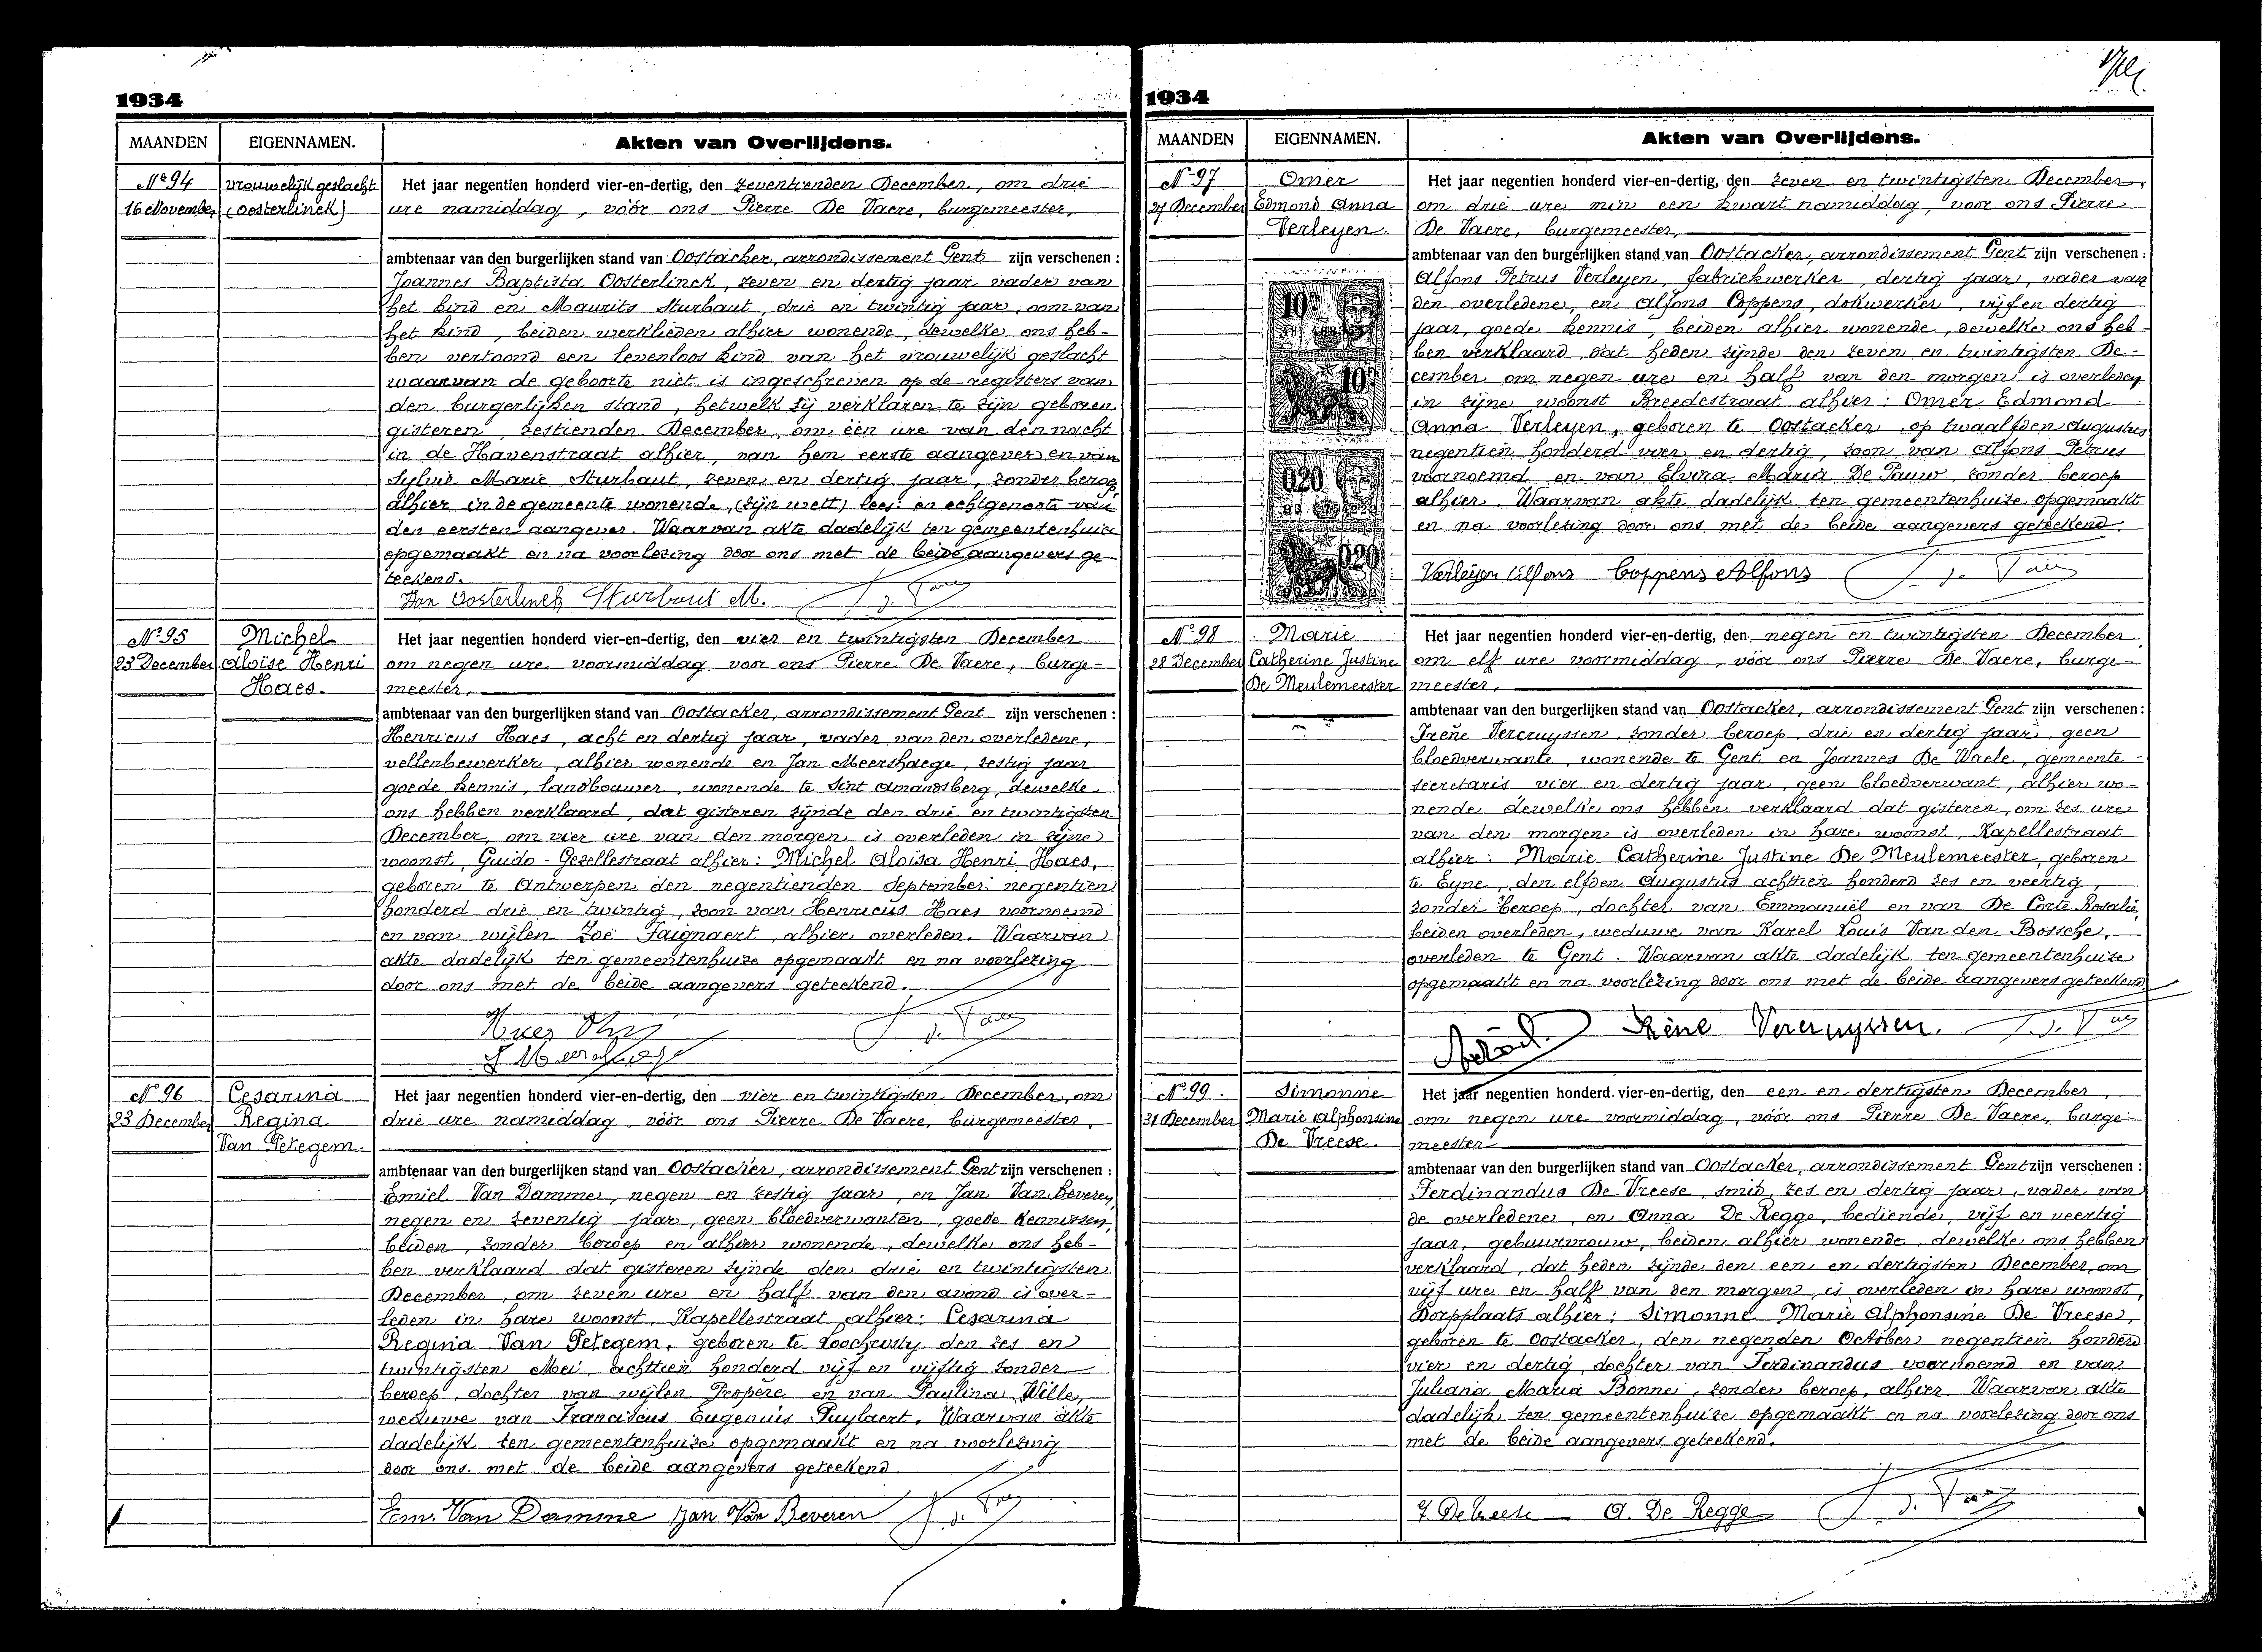 1934
MAANDEN
EIGENNAMEN.
Akten van Overlijdens.
No 94
16 November
vrouwelijk geslacht
(Oosterlinck)
Het jaar negentien honderd vier-en-dertig, den zeventienden December, om drie
ure namiddag, vóór ons Pierre De Vaere, burgemeester,
ambtenaar van den burgerlijken stand van Oostacker, arrondissement Gent zijn verschenen :
Joannes Baptista Oosterlinck, zeven en dertig jaar vader van
het kind en Maurits Sturbaut, drie en twintig jaar, oom van
het kind, beiden werklieden alhier wonende, dewelke ons heb-
ben vertoond een levenloos kind van het vrouwelijk geslacht
waarvan de geboorte niet is ingeschreven op de registers van
den burgerlijken stand, hetwelk zij verklaren te zijn geboren
gisteren, zestienden December, om één ure van den nacht
in de Havenstraat alhier, van hem eerste aangever en van
Sylvie Marie Sturbaut, zeven en dertig jaar, zonder beroep
alhier in de gemeente wonende, (zijn wett) lees: en echtgenoote van
den eersten aangever. Waarvan akte dadelijk ten gemeentenhuize
opgemaakt en na voorlezing door ons met de beide aangevers ge-
teekend.
Jan Oosterlinck Sturbaut M.
No 95
23 December
Michel
Aloïse Henri
Haes.
Het jaar negentien honderd vier-en-dertig, den vier en twintigsten December
om negen ure voormiddag, voor ons Pierre De Vaere, burge-
meester,
ambtenaar van den burgerlijken stand van Oostacker, arrondissement Gent zijn verschenen :
Henricus Haes, acht en dertig jaar, vader van den overledene,
vellenbewerker, alhier wonende en Jan Meershaege, zestig jaar
goede kennis, landbouwer, wonende te Sint Amandsberg, dewelke
ons hebben verklaard, dat gisteren zijnde den drie en twintigsten
December, om vier ure van den morgen, is overleden in zijne
woonst, Guido-Gezellestraat alhier: Michel Aloïsa Henri Haes,
geboren te Antwerpen den negentienden September negentien
honderd drie en twintig, zoon van Henricus Haes voornoemd
en van wijlen Zoë Taignaert, alhier overleden. Waarvan
akte dadelijk ten gemeentenhuize opgemaakt en na voorlezing
door ons met de beide aangevers geteekend.
No 96
23 December
Cesarina
Regina
Van Petegem.
Het jaar negentien honderd vier-en-dertig, den vier en twintigsten December, om
drie ure namiddag, vóór ons Pierre De Vaere, burgemeester,
ambtenaar van den burgerlijken stand van Oostacker, arrondissement Gent zijn verschenen :
Emiel Van Damme, negen en zestig jaar, en Jan Van Beveren,
negen en zeventig jaar, geen bloedverwanten, goede kennissen,
beiden, zonder beroep en alhier wonende, dewelke ons heb-
ben verklaard dat gisteren zijnde den drie en twintigsten
December, om zeven ure en half van den avond is over-
leden in hare woonst, Kapellestraat alhier: Cesarina
Regina Van Petegem, geboren te Loochristy den zes en
twintigsten Mei, achttien honderd vijf en vijftig zonder
beroep, dochter van wijlen Propère en van Paulina Wille,
weduwe van Franciscus Eugenuis Puylaert. Waarvan akte
dadelijk ten gemeentenhuize opgemaakt en na voorlezing
door ons met de beide aangevers geteekend
Em. Van Damme Jan Van Beveren
1934
MAANDEN
EIGENNAMEN.
Akten van Overlijdens.
No 97
27 December
Omer
Edmond Anna
Verleyen.
Het jaar negentien honderd vier-en-dertig, den zeven en twintigsten December,
om drie ure min een kwart namiddag, voor ons Pierre
De Vaere, burgemeester,
ambtenaar van den burgerlijken stand van Oostacker, arrondissement Gent zijn verschenen :
Alfons Petrus Verleyen, fabriekwerker, dertig jaar, vader van
den overledene, en Alfons Coppens, dokwerker, vijf en dertig
jaar, goede kennis, beiden alhier wonende, dewelke ons heb-
ben verklaard dat heden zijnde den zeven en twintigsten De-
cember om negen ure en half van den morgen is overleden
in zijne woonst Breedestraat alhier: Omer Edmond
Anna Verleyen, geboren te Oostacker, op twaalfden Augustus
negentien honderd vier en dertig, zoon van Alfons Petrus
voornoemd en van Elvira Maria De Pauw, zonder beroep
alhier. Waarvan akte dadelijk ten gemeentenhuize opgemaakt
en na voorlezing door ons met de beide aangevers geteekend.
Verleyen Alfons Coppens Alfons
10
10
020
020
No 98
28 December
Marie
Catherine Justine
De Meulemeester
Het jaar negentien honderd vier-en-dertig, den negen en twintigsten December
om elf ure voormiddag, vóór ons Pierre De Vaere, burge-
meester,
ambtenaar van den burgerlijken stand van Oostacker, arrondissement Gent zijn verschenen :
Irène Vercruyssen, zonder beroep, drie en dertig jaar, geen
bloedverwante, wonende te Gent en Joannes De Waele, gemeente-
secretaris vier en dertig jaar, geen bloedverwant, alhier wo-
nende dewelke ons hebben verklaard dat gisteren, om zes ure
van den morgen is overleden in hare woonst, Kapellestraat
alhier: Marie Catherine Justine De Meulemeester, geboren
te Eyne, den elfden Augustus achttien honderd zes en veertig,
zonder beroep, dochter van Emmanuël en van De Corte Rosalie,
beiden overleden, weduwe van Karel Louis Van den Bossche,
overleden te Gent. Waarvan akte dadelijk ten gemeentenhuize
opgemaakt en na voorlezing door ons met de beide aangevers geteekend
Irène Vercruyssen.
No 99.
31 December
Simonne
Marie Alphonsine
De Vreese.
Het jaar negentien honderd vier-en-dertig, den een en dertigsten December,
om negen ure voormiddag, vóór ons Pierre De Vaere, burge-
meester
ambtenaar van den burgerlijken stand van Oostacker, arrondissement Gent zijn verschenen :
Ferdinandus De Vreese, smid, zes en dertig jaar, vader van
de overledene, en Anna De Regge, bediende, vijf en veertig
jaar, gebuurvrouw, beiden alhier wonende, dewelke ons hebben
verklaard, dat heden zijnde den een en dertigsten December, om
vijf ure en half van den morgen, is overleden in hare woonst,
Dorpplaats alhier: Simonne Marie Alphonsine De Vreese,
geboren te Oostacker, den negenden October negentien honderd
vier en dertig, dochter van Ferdinandus voornoemd en van
Juliana Maria Bonne, zonder beroep, alhier. Waarvan akte
dadelijk ten gemeentenhuize opgemaakt en na voorlezing door ons
met de beide aangevers geteekend.
F. De Vreese A. De Regge